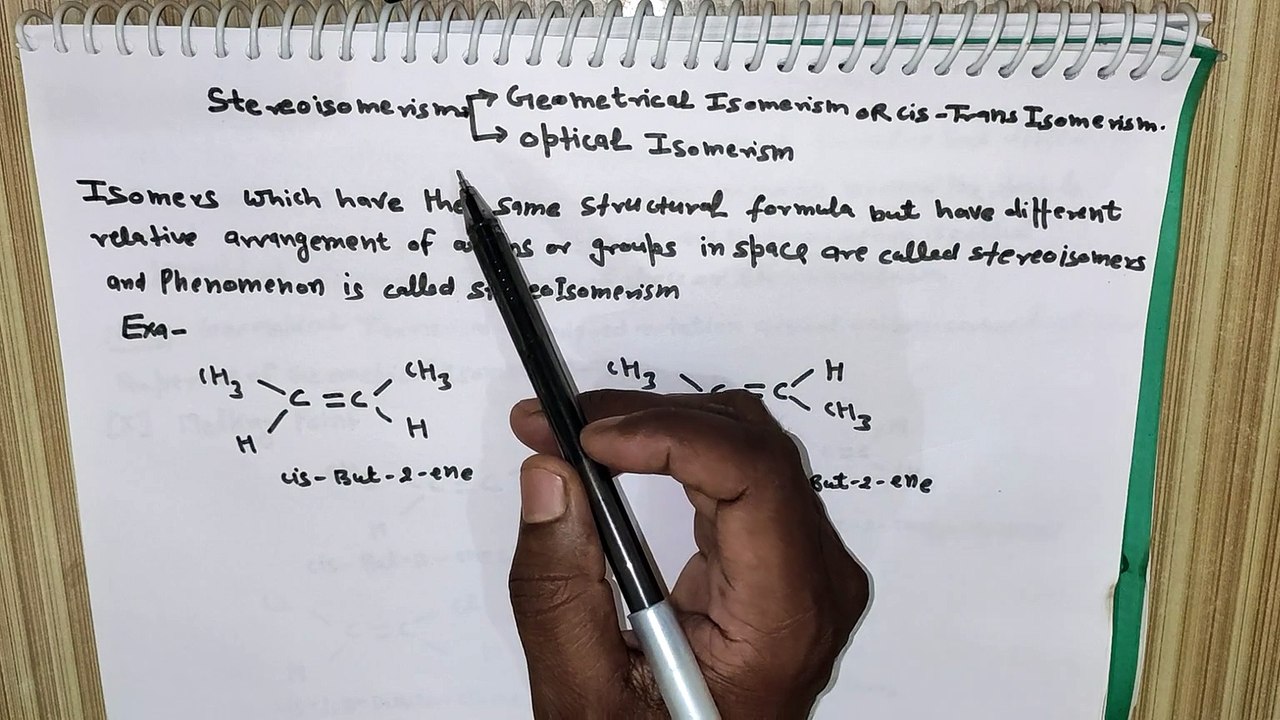 Stereoisomerism → Geometrical Isomerism OR cis-Trans Isomerism.
→ optical Isomerism
Isomers which have the same structural formula but have different
relative arrangement of or groups in space are called stereoisomers
and Phenomenon is called Isomerism
Exa-
CH3 CH3 CH3 H
C = C = C
H H CH3
cis-But-2-ene But-2-ene